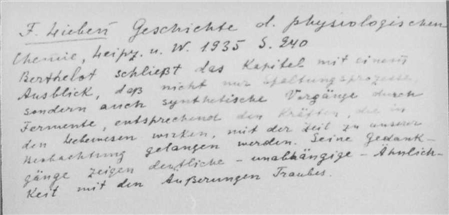 F. Lieben, Geschichte d. physiologischen
Chemie, Leipz. u. W. 1935 S. 240
Berthelot schließt das Kapitel mit einem
Ausblick, daß nicht nur Spaltungsprozesse,
sondern auch synthetische Vorgänge durch
Fermente, entsprechend den Kräften, die in
den Lebewesen wirken, mit der Zeit zu unserer
Beobachtung gelangen werden. Seine Gedank-
gänge zeigen deutliche - unabhängige - Ähnlich-
keit mit den Äußerungen Traubes.